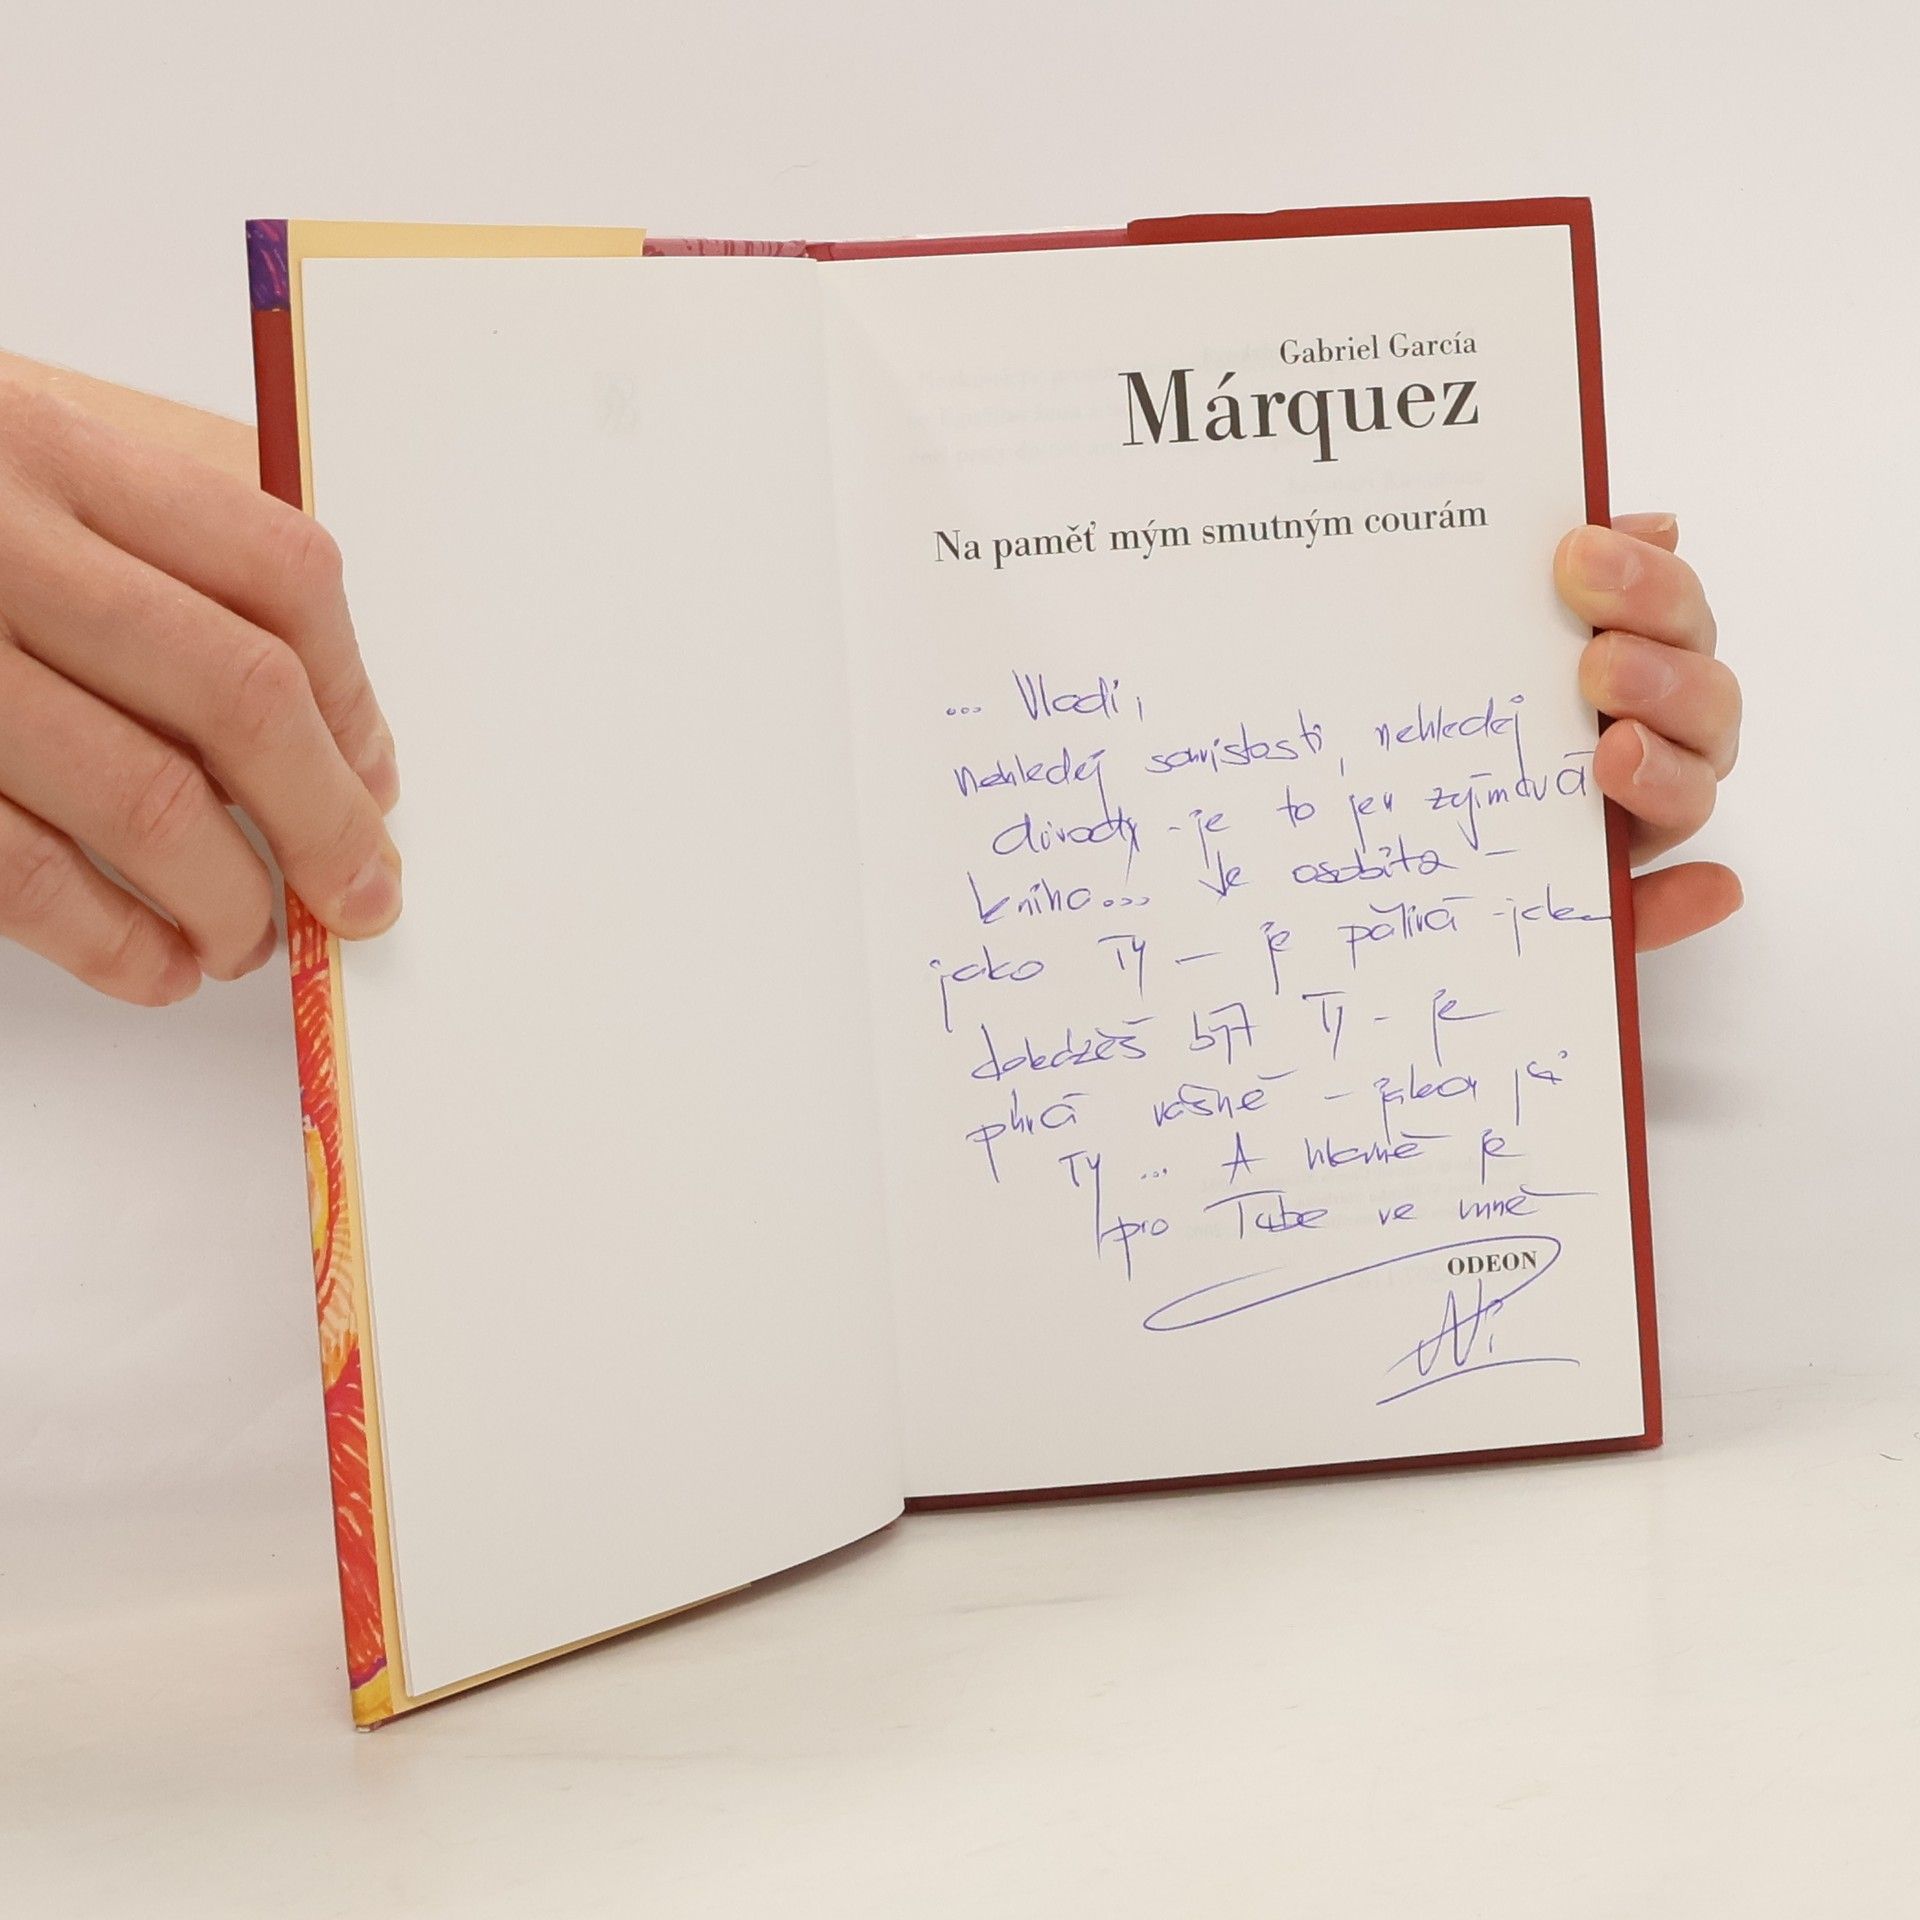 Gabriel García
Márquez
Na paměť mým smutným courám
... Vladi,
nehledej souvislosti, nehledej
důvody - je to jen zajímavá
kniha... Je osobitá -
jako Ty - je pálivá - jako
dokážeš být Ty - je
plná vášně - jako
Ty ... A hlavně je
pro Tebe ve mně
ODEON